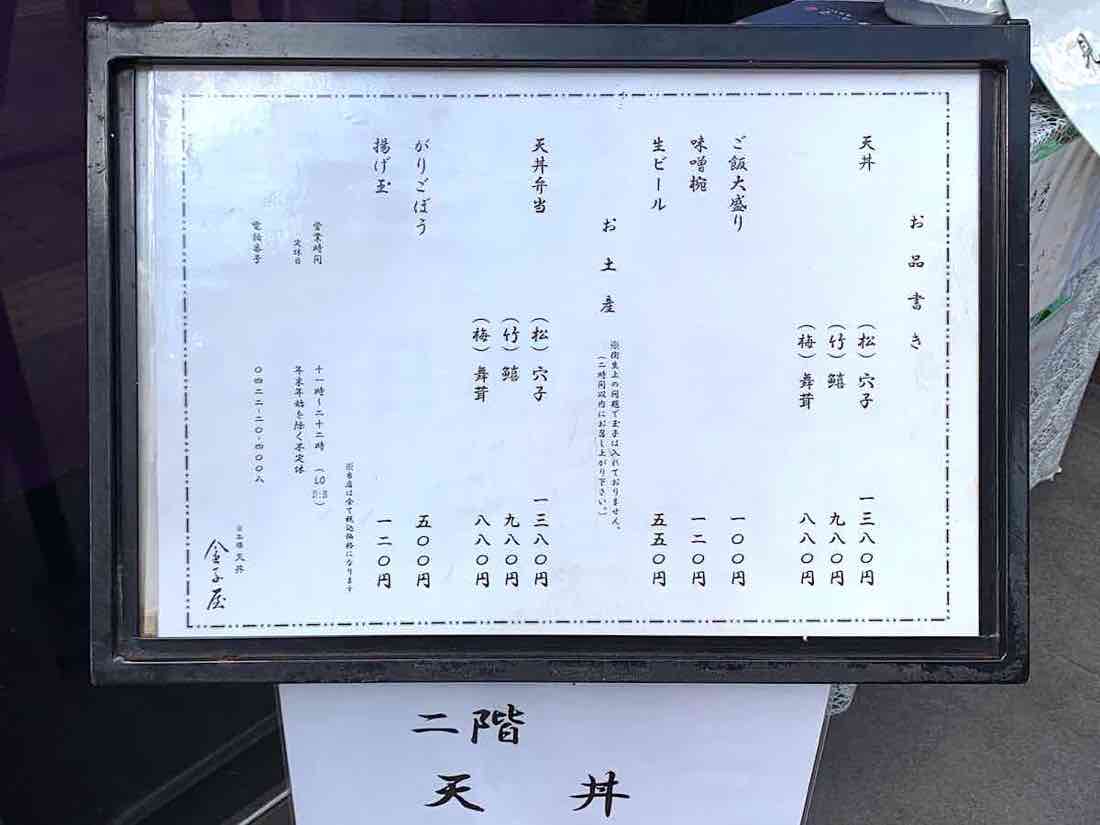 お品書き
天丼 (松) 穴子 一三八〇円
(竹) 鱚 九八〇円
(梅) 舞茸 八八〇円
ご飯大盛り 一〇〇円
味噌椀 一二〇円
生ビール 五五〇円
お土産 ※衛生上の問題で玉子は入れておりません。
(二時間以内にお召し上がり下さい。)
天丼弁当 (松) 穴子 一三八〇円
(竹) 鱚 九八〇円
(梅) 舞茸 八八〇円
がりごぼう 五〇〇円
揚げ玉 一二〇円
※当店は全て税込価格になります
営業時間 十一時~二十二時 (LO
定休日 年末年始を除く不定休
電話番号 〇四二二-二〇-四〇〇八
天丼
金子屋
二階
天丼